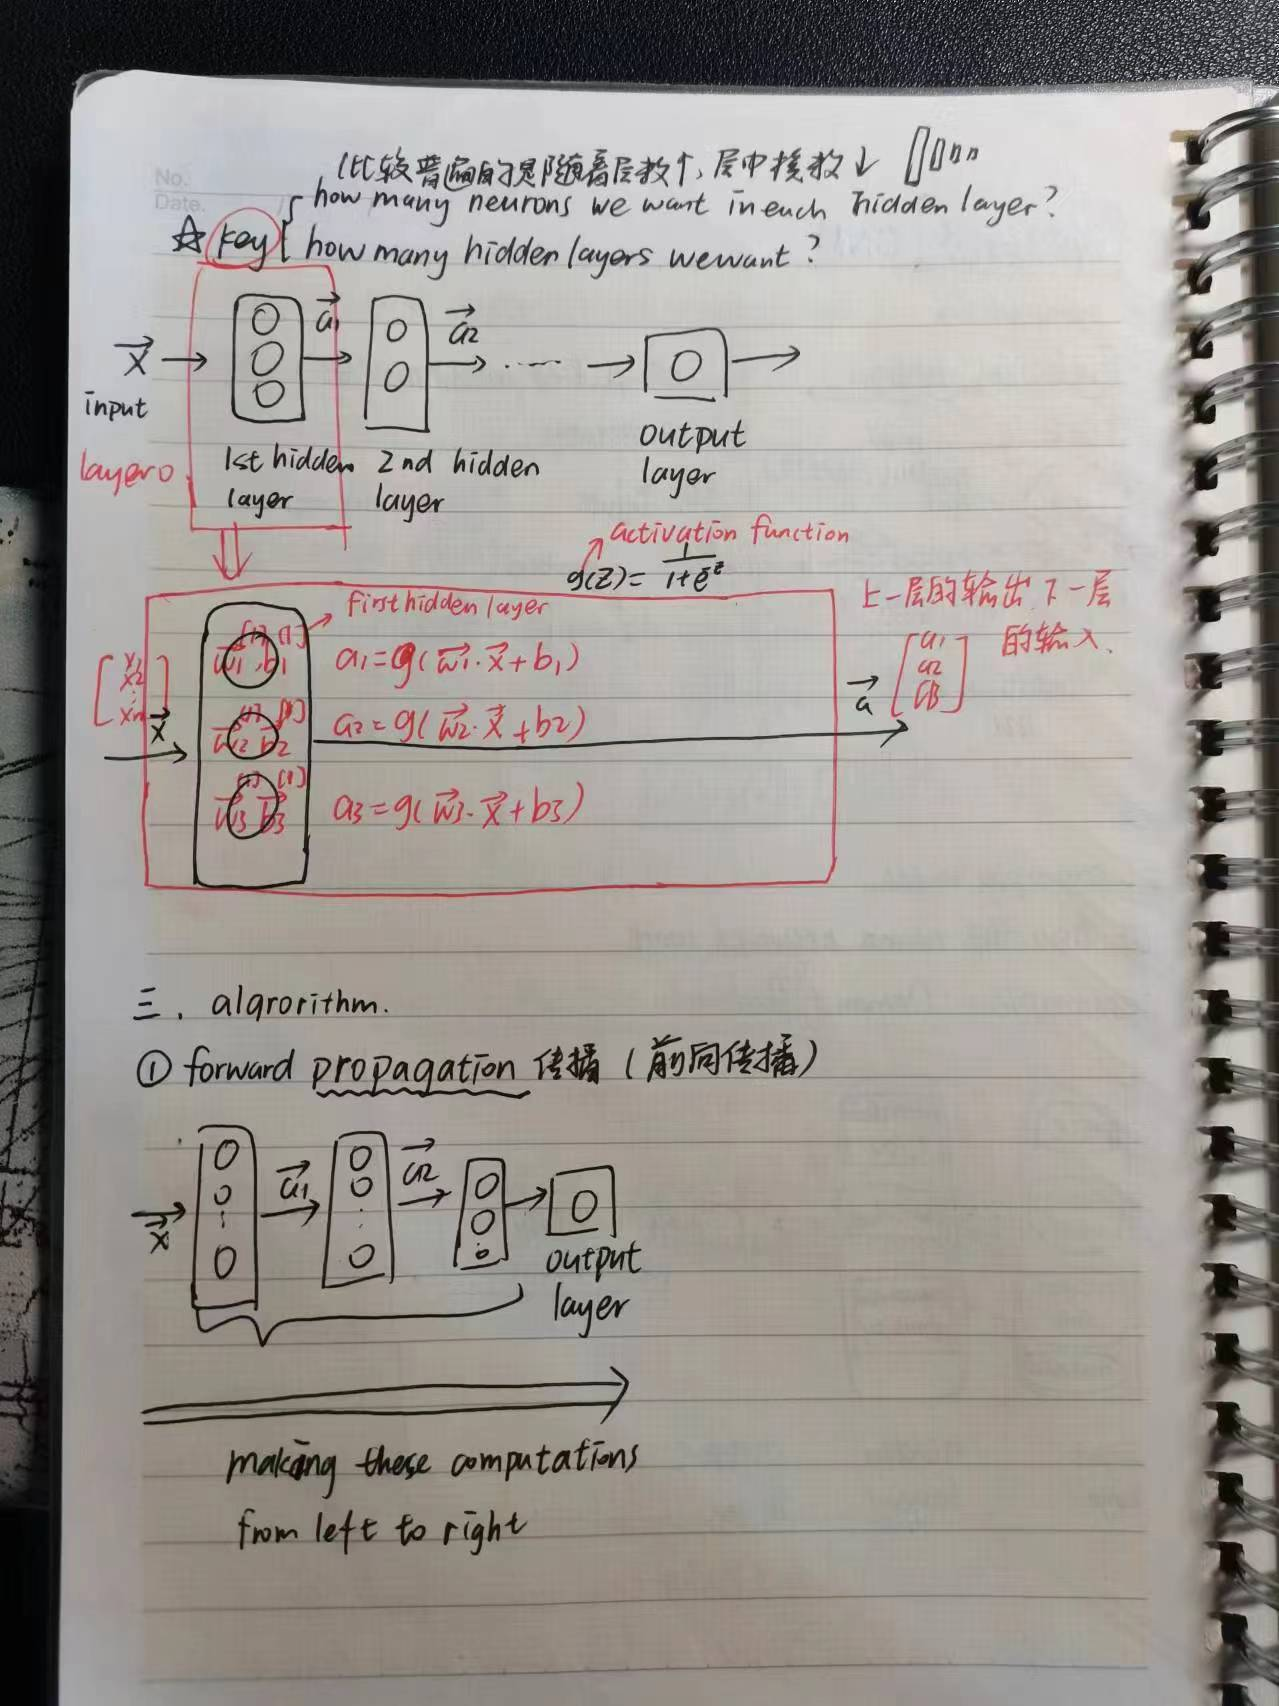 No.
Date.
(比较普遍的是随着层数↑, 层中核数↓
how many neurons we want in each hidden layer?
☆ key { how many hidden layers we want?
→x → a⃗1 a⃗2 ...... → →
input
layer 0
1st hidden layer
2nd hidden layer
output layer
activation function
g(z) = 1/(1+e^-z)
first hidden layer
上一层的输出 下一层
的输入.
[x1 x2 ⋮ xn] x⃗
w⃗1[1], b1[1] a1 = g(w⃗1·x⃗+b1)
w⃗2[1] b⃗2[1] a2 = g(w⃗2·x⃗+b2)
w⃗3[1] b⃗3[1] a3 = g(w⃗3·x⃗+b3)
a⃗ [a1 a2 a3]
三. alqrorithm.
① forward propagation 传播 (前向传播)
x⃗ a⃗1 a⃗2
output
layer
making these computations
from left to right